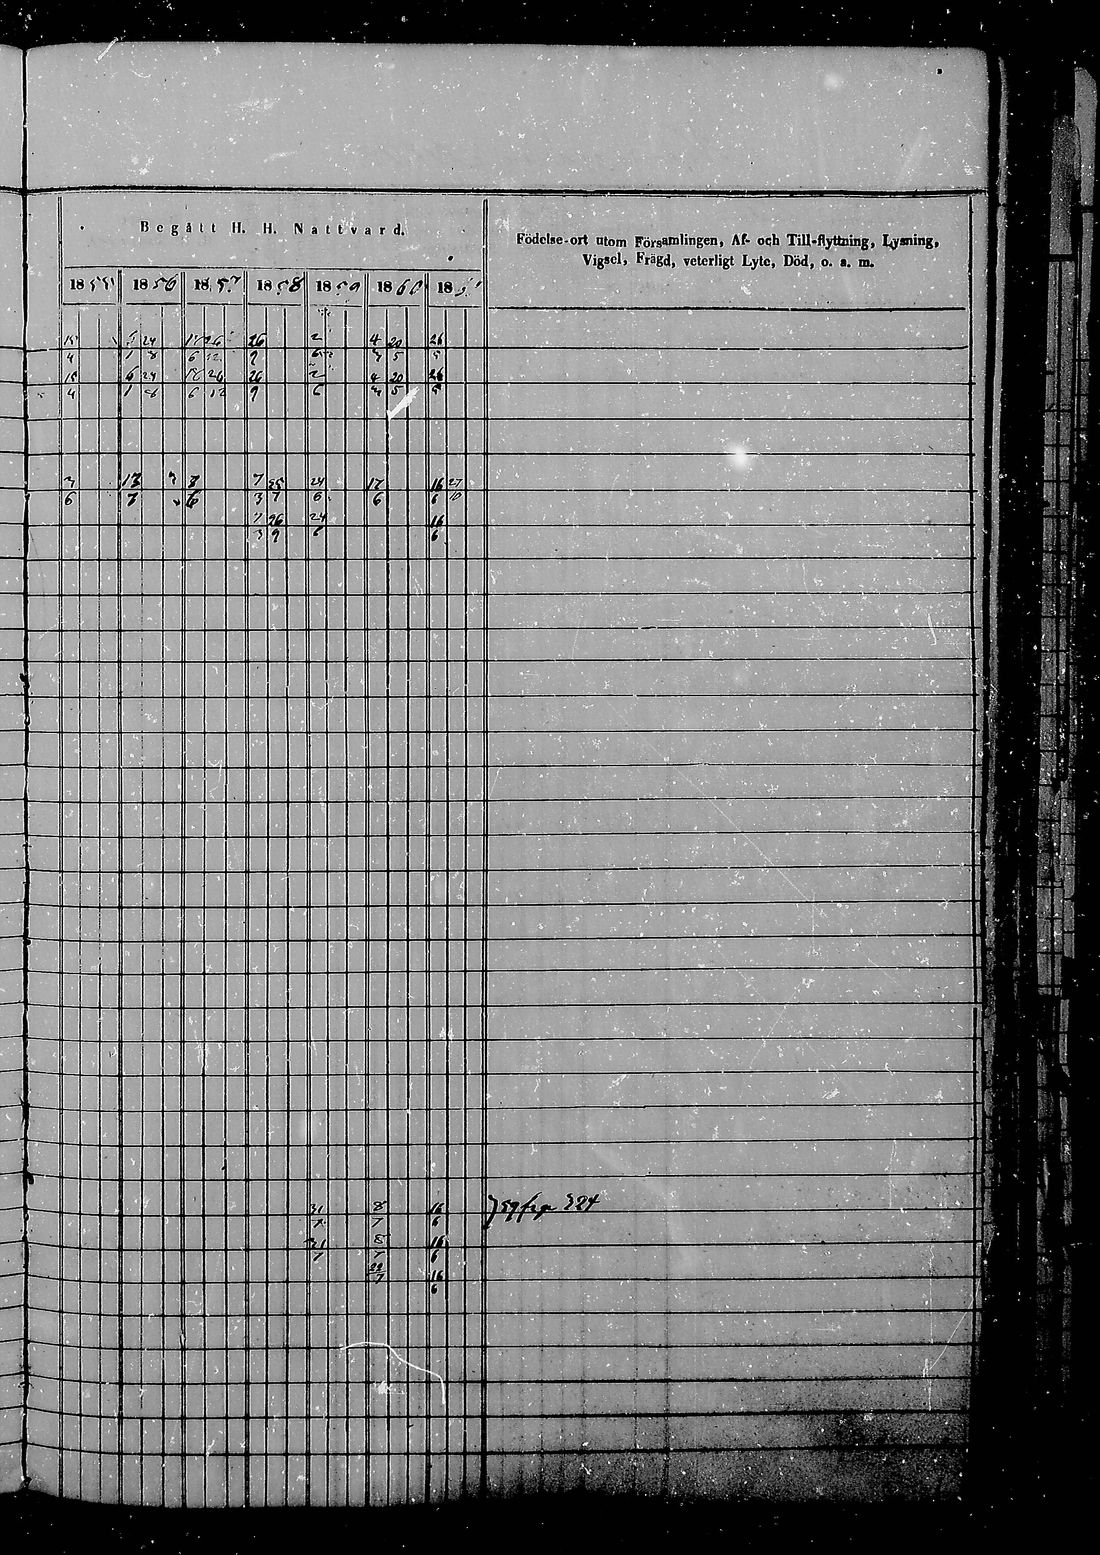 Begått H. H. Nattvard.
Födelse-ort utom Församlingen, Af- och Till-flyttning, Lysning,
Vigsel, Frägd, veterligt Lyte, Död, o. s. m.
1855 1856 1857 1858 1859 1860 186
15 24 26 26 2 4 20 26
4 1 8 6 12 9 6 5 5
15 6 24 26 26 2 4 20 26
4 1 8 6 12 9 6 5 5
13 7 7 25 24 17 16 27
6 7 6 3 7 6 6 6 10
7 26 24 16
3 9 6 6
31 8 16 59 fr p 324
7 7 6
31 8 16
7 7 6
22
7 16
6